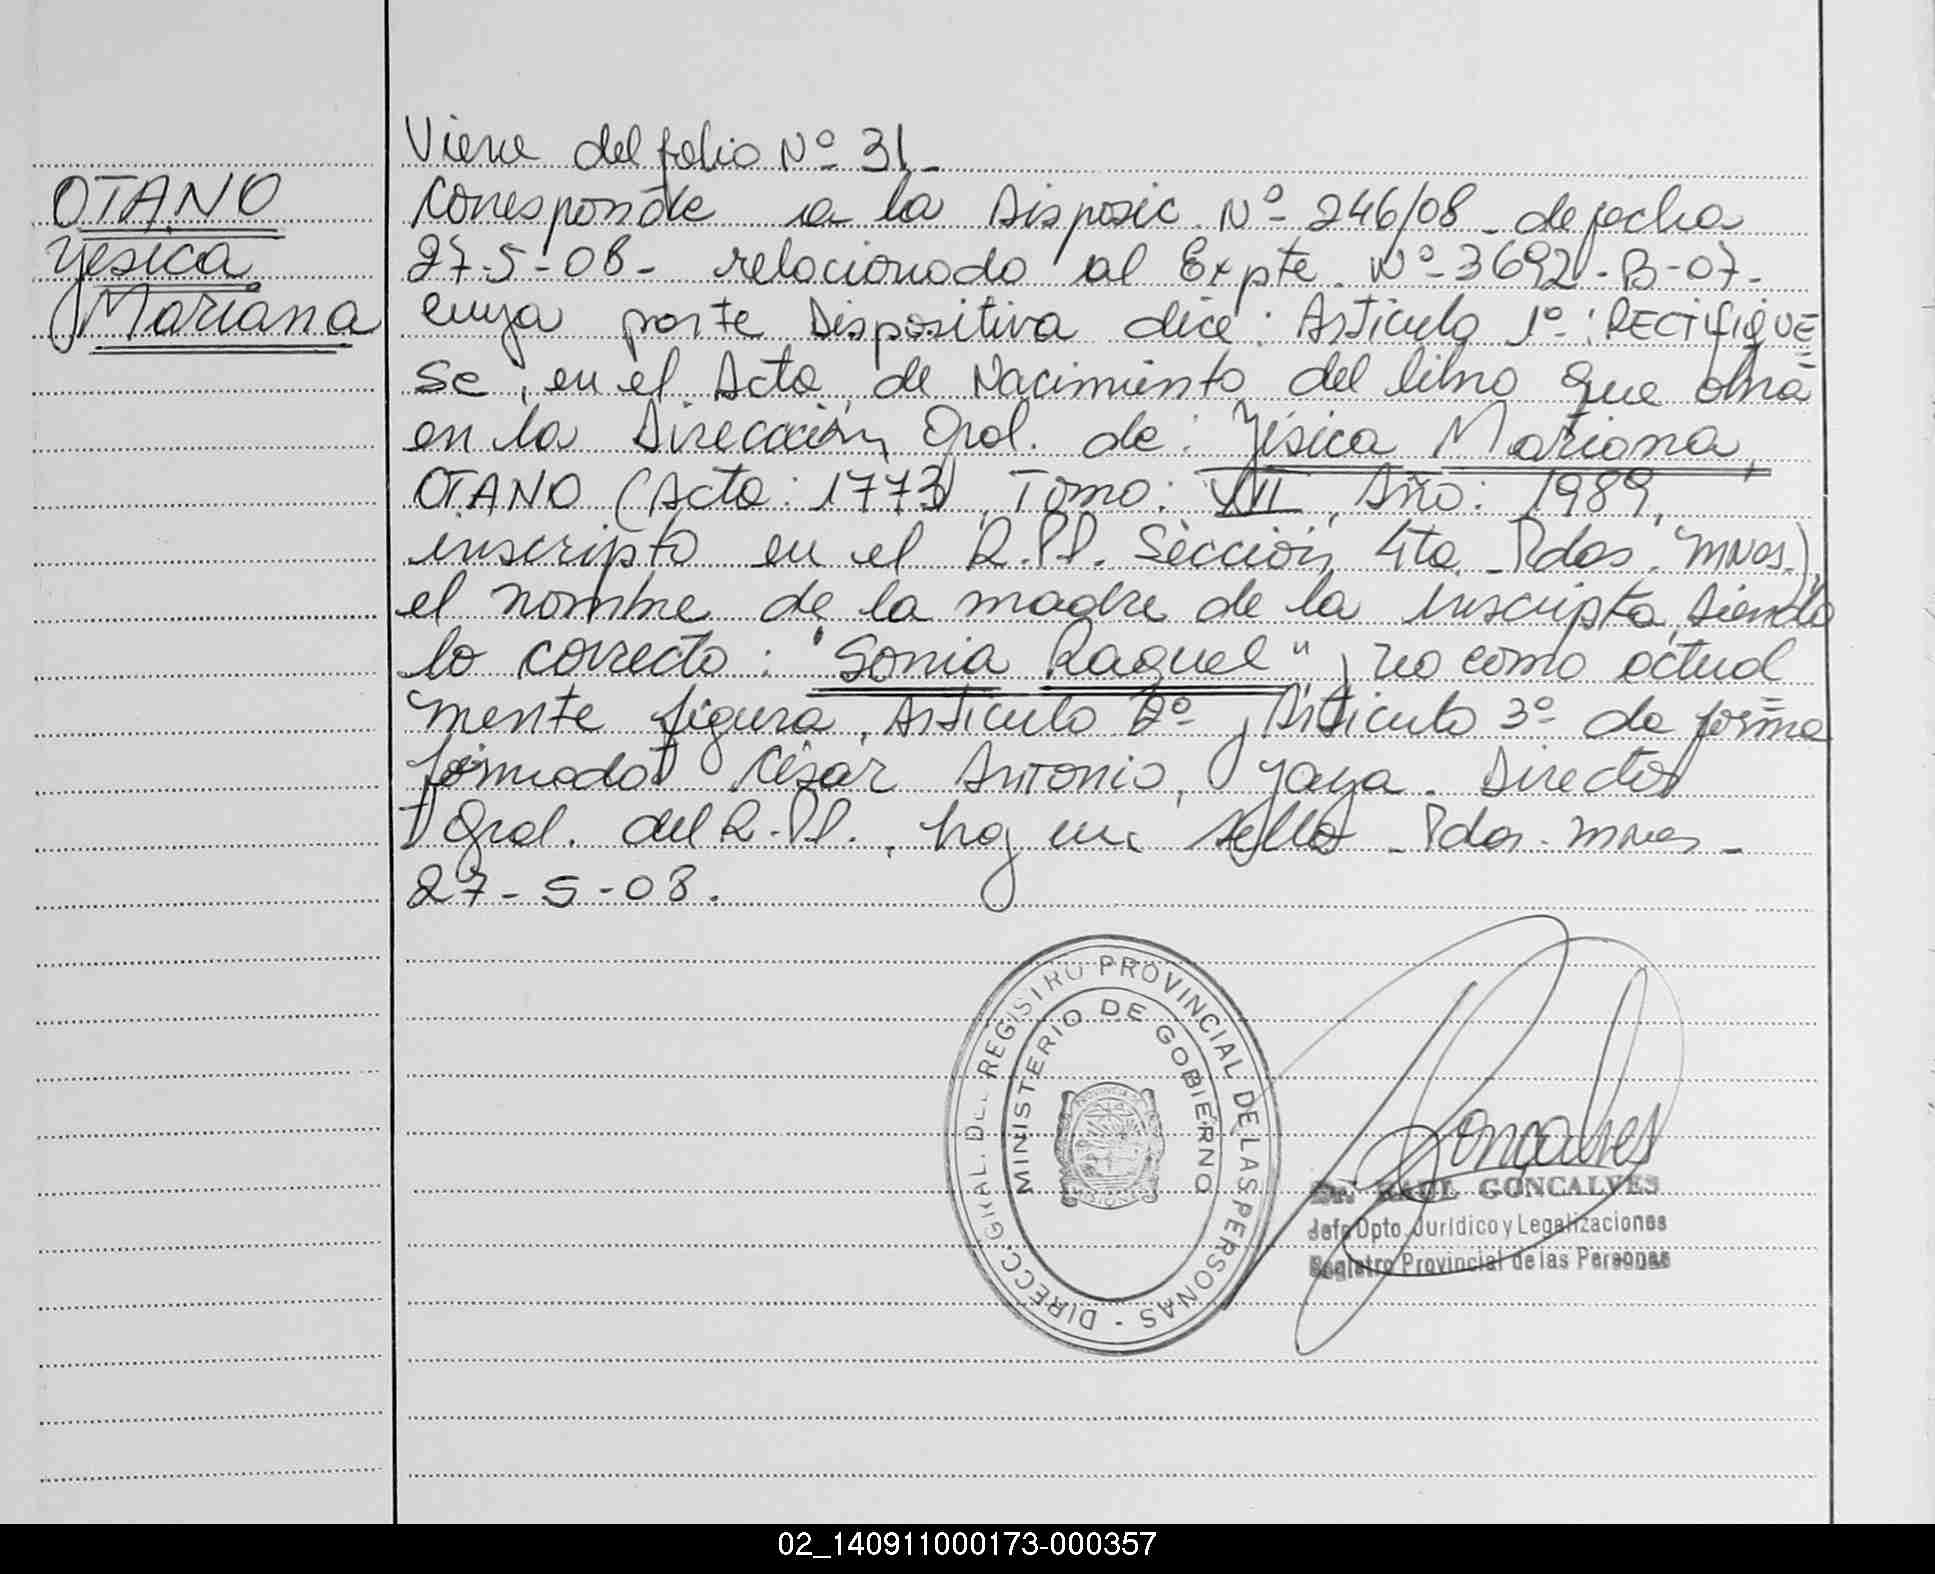 OTANO
Yesica
Mariana
Viene del folio Nº 31.
Corresponde a la Disposic. Nº 246/08 de fecha
27-5-08- relacionado al Expte. Nº 3692-B-07-
cuya parte Dispositiva dice: Artículo 1º: RECTIFIQUE
SE, en el Acta de Nacimiento del libro que obra
en la Dirección Gral. de: Yesica Mariana,
OTANO (Acta: 1773, Tomo: VII, Año: 1989,
inscripta en el R.P.P. Sección 4ta. Pdas. Mnes.),
el nombre de la madre de la inscripta, siendo
lo correcto: "Sonia Raquel" y no como actual
mente figura, Artículo 2º y Artículo 3º de forma
firmado César Antonio Yaya. Director
Gral. del R.P.P., hay un sello - Pdas. Mnes -
27-5-08.
DIRECC. GRAL. DEL REGISTRO PROVINCIAL DE LAS PERSONAS -
MINISTERIO DE GOBIERNO
Goncalves
Dr. RAUL GONCALVES
Jefe Dpto. Jurídico y Legalizaciones
Registro Provincial de las Personas
02_140911000173-000357